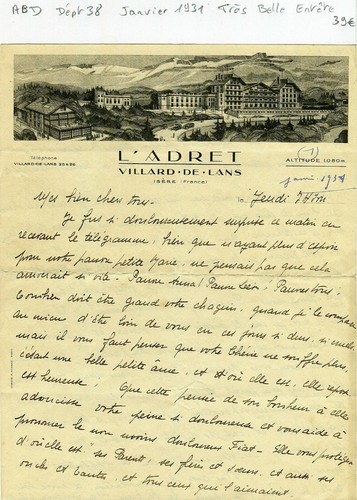 ABD Dépt 38 Janvier 1931 Très Belle Entête
39€
Téléphone
VILLARD-DE-LANS
L'ADRET
VILLARD-DE-LANS
ISÈRE (France)
ALTITUDE 1.080 m.
Jeudi
Mes bien chers tous.
Je fus si douloureusement surprise ce matin en
recevant le télégramme; bien que n'ayant plus d'espoir
pour notre pauvre petite Marie, ne pensais pas que cela
arriverait si vite. Pauvre Anna! Pauvre Léo! Pauvres tous!
Combien doit être grand votre chagrin, quand je le compare
au mien d'être loin de vous en ces jours si durs, si cruels
mais il vous faut penser que votre Chérie ne souffre plus,
c'était une belle petite âme, et où elle est, elle repose
et est heureuse! Que cette pensée de son bonheur à elle
adoucisse votre peine si douloureuse et vous aide à
prononcer le non moins douloureux Fiat. Elle vous protègera
d'où elle est, ses Parents, ses frères et sœurs, et aussi ses
oncles et tantes, et tous ceux qui l'aimaient.